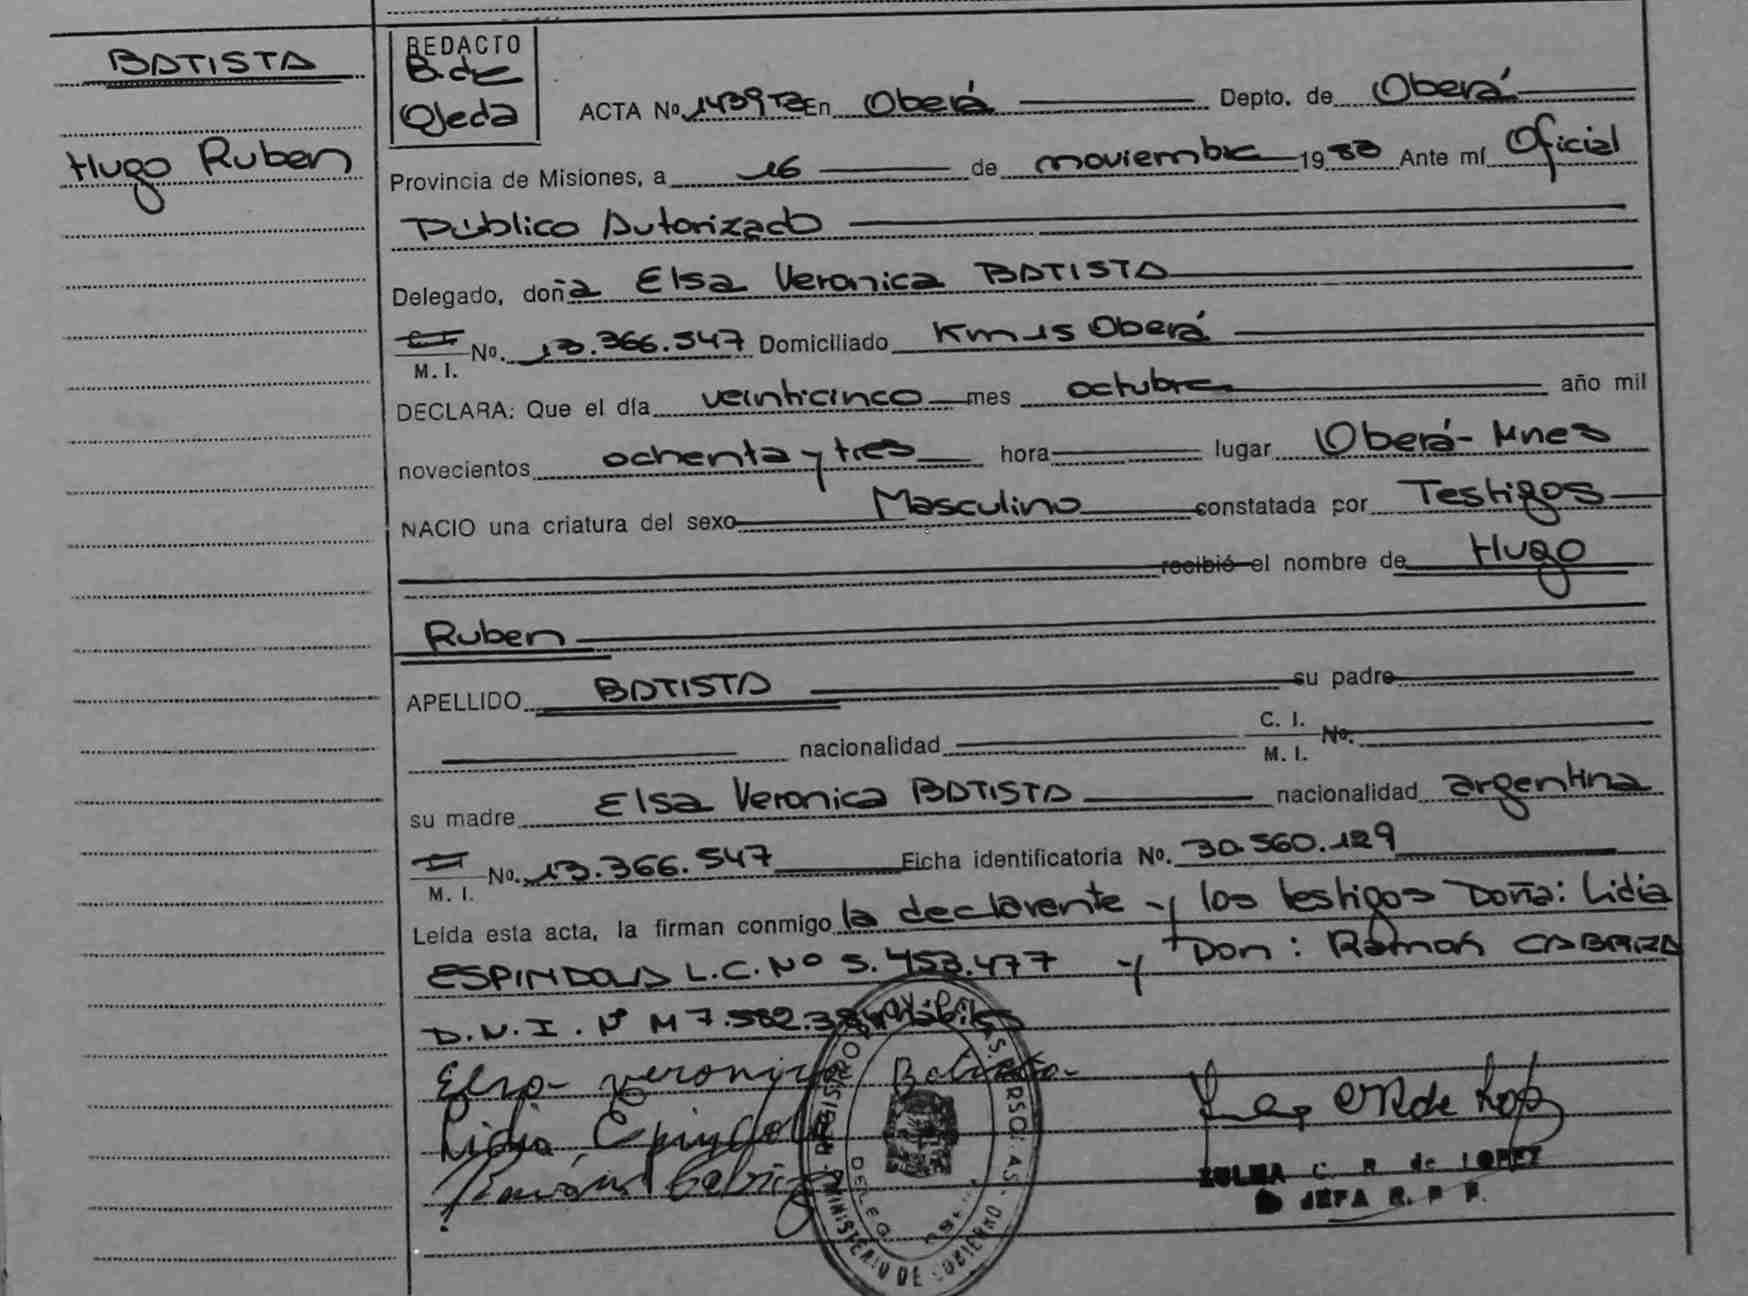 BATISTA
Hugo Ruben
REDACTO
B. de
Ojeda
ACTA No 1439 En Oberá Depto. de Oberá
Provincia de Misiones, a 16 de noviembre 1983 Ante mí Oficial
Público Autorizado
Delegado, doña Elsa Veronica BATISTA
C. I.
M. I. No. 13.366.547 Domiciliado Km 15 Oberá
DECLARA: Que el día veinticinco mes octubre año mil
novecientos ochenta y tres hora lugar Oberá - Mnes
NACIO una criatura del sexo Masculino constatada por Testigos
recibió el nombre de Hugo
Ruben
APELLIDO BATISTA su padre
nacionalidad C. I.
M. I. No.
su madre Elsa Veronica BATISTA nacionalidad argentina
M. I. No. 13.366.547 Ficha identificatoria No. 30.560.129
Leída esta acta, la firman conmigo la declarente y los testigos Doña: Lidia
ESPINDOLA L.C. Nº 5.453.477 y Don: Ramon CABRIZA
D.N.I. Nº M 7.582.
Elsa Veronica Batista
Lidia Espindola
Ramón Cabriza
REGISTRO
MINISTERIO DE GOBIERNO
ZULMA C. R. de LOPEZ
JEFA R. P. P.